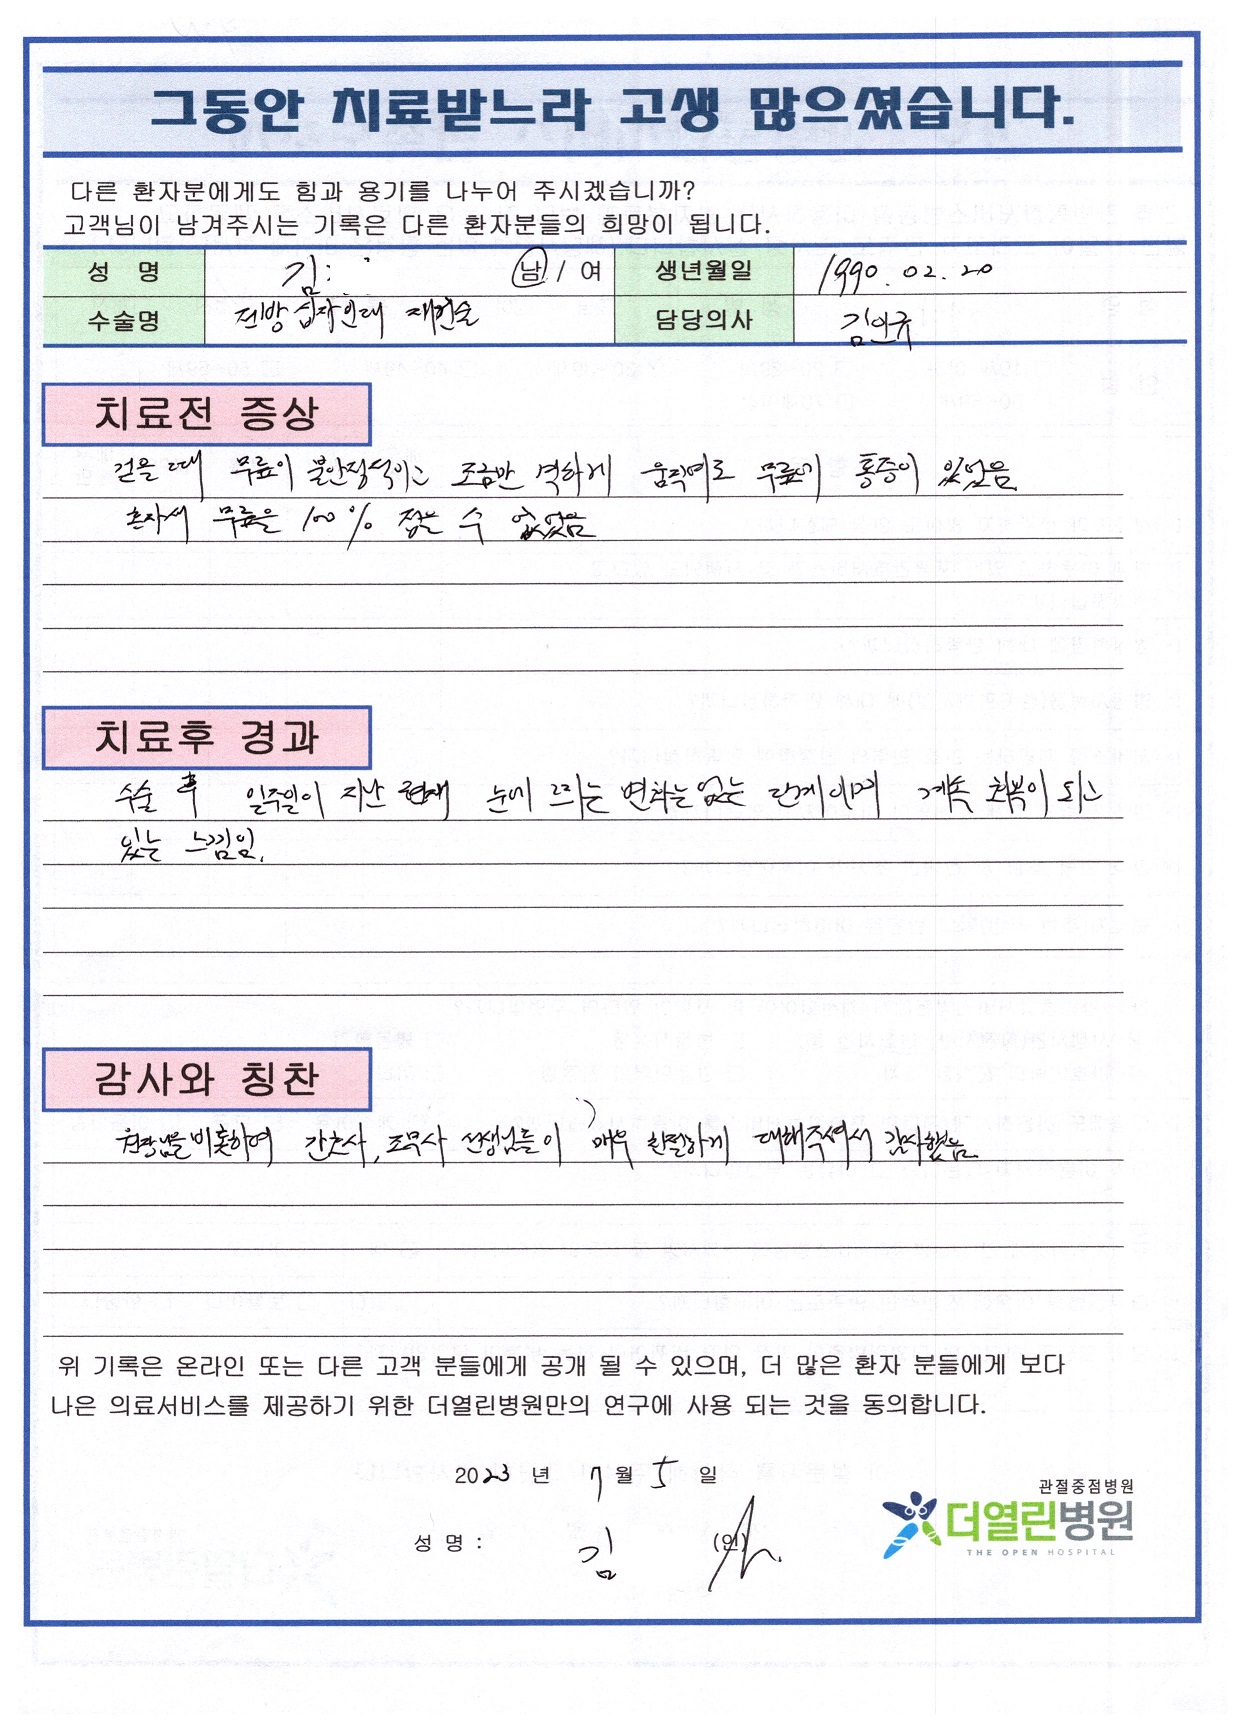 그동안 치료받느라 고생 많으셨습니다.
다른 환자분에게도 힘과 용기를 나누어 주시겠습니까?
고객님이 남겨주시는 기록은 다른 환자분들의 희망이 됩니다.
성 명 김 남 / 여 생년월일 1990. 02. 20
수술명 전방 십자인대 재건술 담당의사 김인규
치료전 증상
걷을 때 무릎이 불안정적이고 조금만 격하게 움직여도 무릎에 통증이 있었음.
혼자서 무릎을 100% 접는 수 없었음
치료후 경과
수술 후 일주일이 지난 현재 눈에 띄는 변화는 없는 단계이며 계속 회복이 되고
있는 느낌임.
감사와 칭찬
원장님을 비롯하여 간호사, 조무사 선생님들이 매우 친절하게 대해주셔서 감사했음.
위 기록은 온라인 또는 다른 고객 분들에게 공개 될 수 있으며, 더 많은 환자 분들에게 보다
나은 의료서비스를 제공하기 위한 더열린병원만의 연구에 사용 되는 것을 동의합니다.
2023 년 7 월 5 일
관절중점병원
더열린병원
THE OPEN HOSPITAL
성 명 : 김 (인)